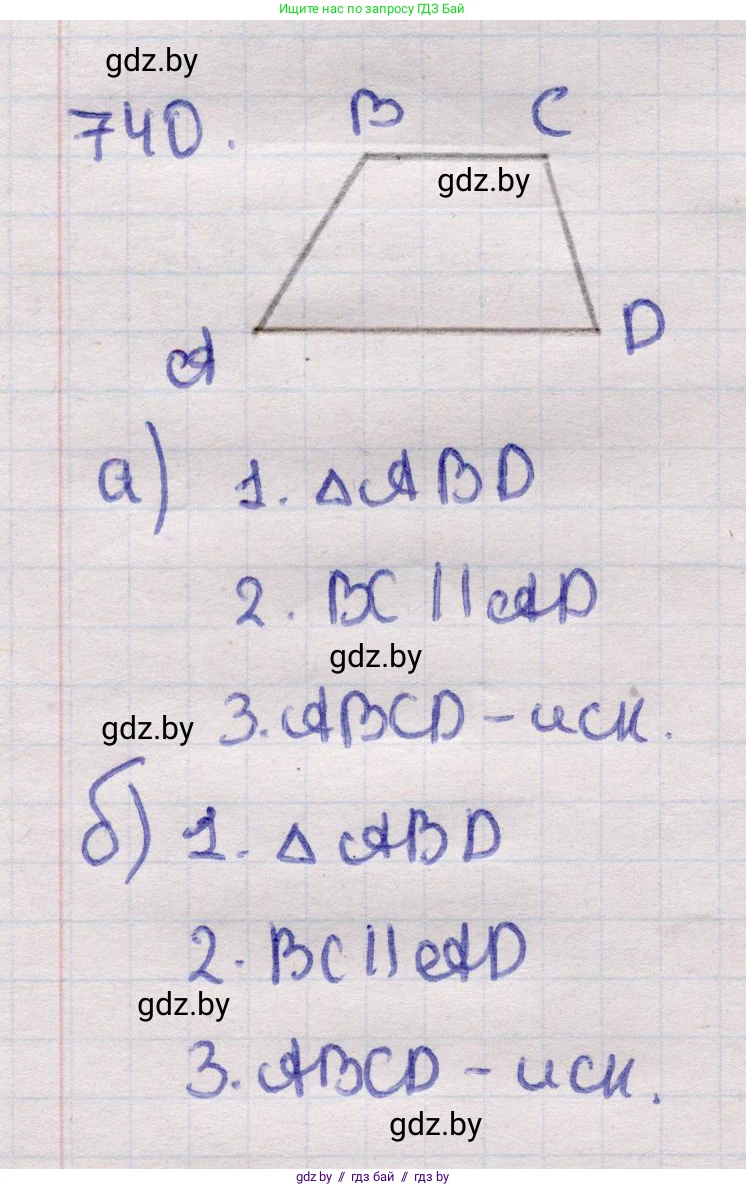 Ищите нас по запросу ГДЗ Бай
gdz.by
740.
B C
gdz.by
A D
а) 1. △ABD
2. BC || AD
gdz.by
3. ABCD – иск.
gdz.by
б) 1. △ABD
2. BC || AD
gdz.by
3. ABCD – иск.
gdz.by
gdz.by // гдз бай // гдз by